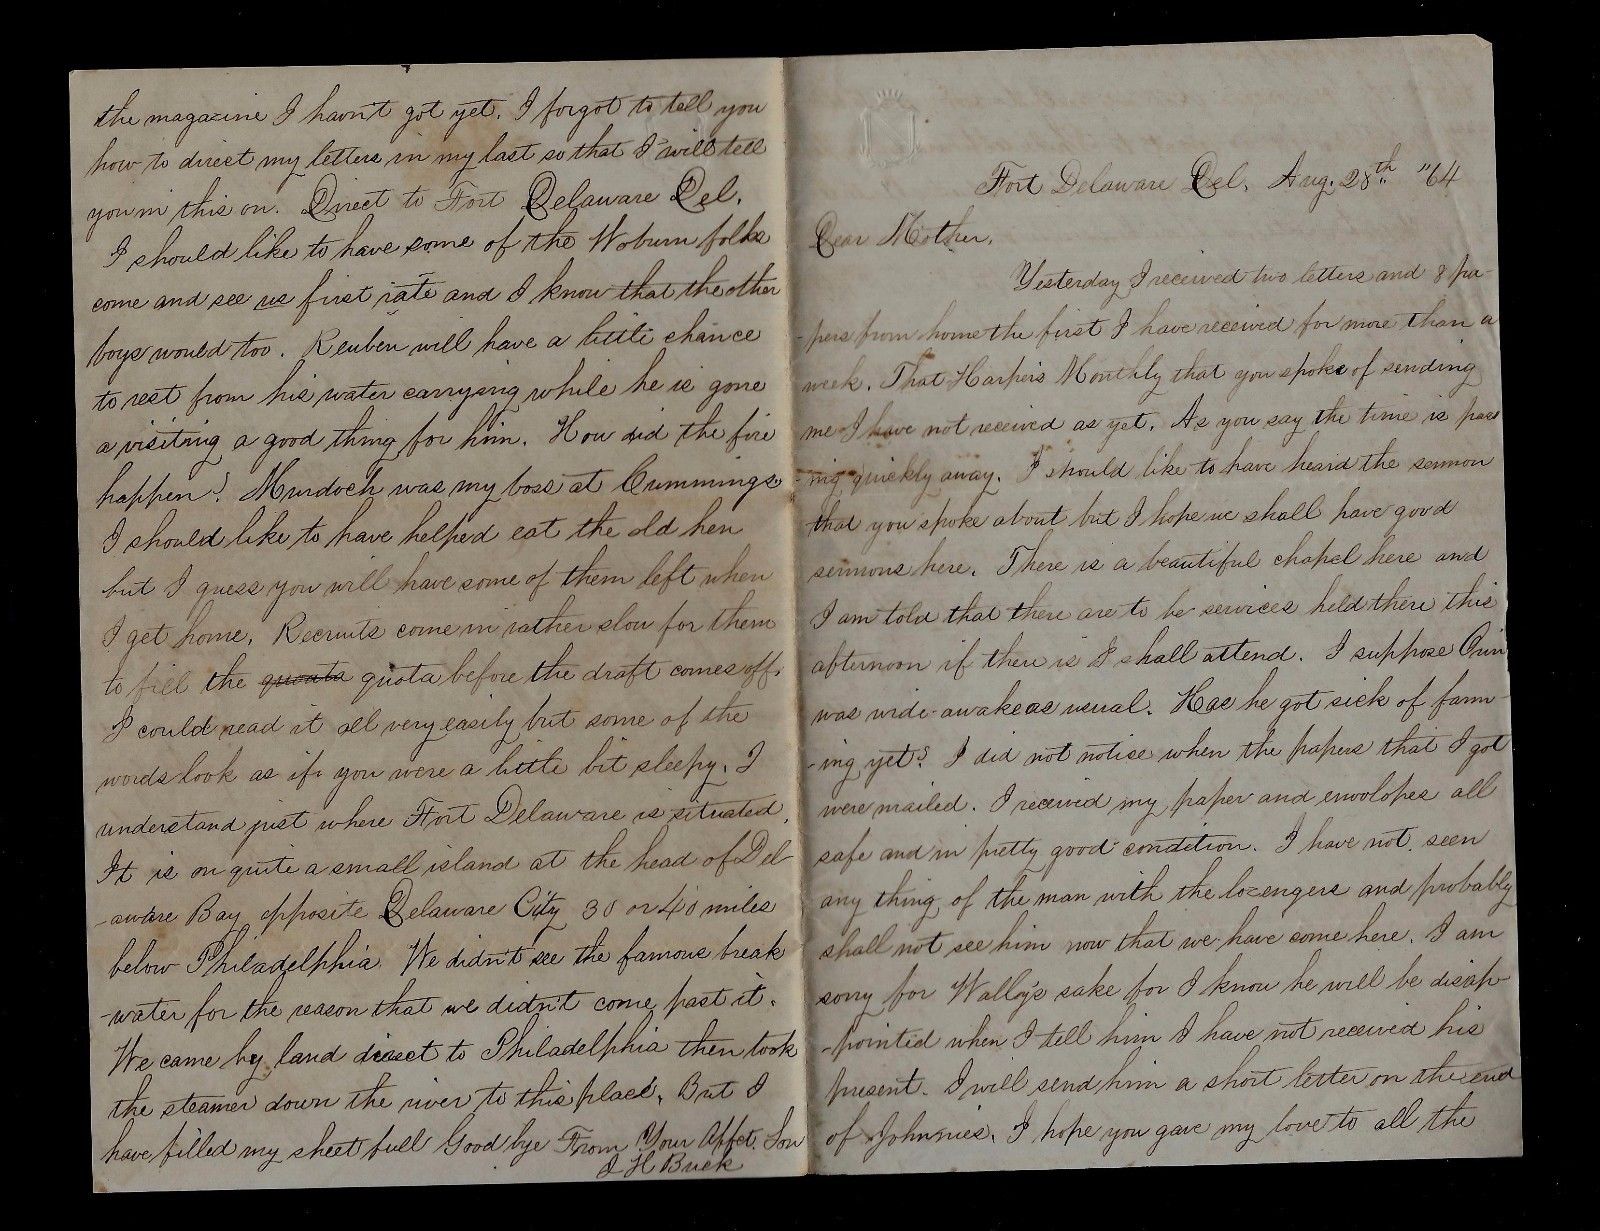 Fort Delaware Del. Aug. 28th "64
Dear Mother,
Yesterday I received two letters and 8 pa-
-pers from home the first I have received for more than a
week. That Harper's Monthly that you spoke of sending
me I have not received as yet. As you say the time is pass
-ing quickly away. I should like to have heard the sermon
that you spoke about but I hope we shall have good
sermons here. There is a beautiful chapel here and
I am told that there are to be services held there this
afternoon if there is I shall attend. I suppose Orin
was wide-awake as usual. Has he got sick of farm-
-ing yet? I did not notice when the papers that I got
were mailed. I received my paper and envolopes all
safe and in pretty good condition. I have not seen
any thing of the man with the lozengers and probably
shall not see him now that we have come here. I am
sorry for Walley's sake for I know he will be disap-
-pointed when I tell him I have not received his
present. I will send him a short letter on the end
of Johnnies. I hope you gave my love to all the
the magazine I havn't got yet. I forgot to tell you
how to direct my letters in my last so that I will tell
you in this on. Direct to Fort Delaware Del.
I should like to have some of the Woburn folks
come and see us first rate and I know that the other
boys would too. Reuben will have a little chance
to rest from his water carrying while he is gone
a visiting a good thing for him. How did the fire
happen? Murdoch was my boss at Cummings
I should like to have helped eat the old hen
but I guess you will have some of them left when
I get home. Recruits come in rather slow for them
to fill the quoata quota before the draft comes off.
I could read it all very easily but some of the
words look as if you were a little bit sleepy. I
understand just where Fort Delaware is situated.
It is on quite a small island at the head of Del-
-aware Bay opposite Delaware City 30 or 40 miles
below Philadelphia. We didn't see the famous break
-water for the reason that we didn't come past it.
We came by land direct to Philadelphia then took
the steamer down the river to this place. But I
have filled my sheet full Good bye From Your Affct. Son
J H Buck